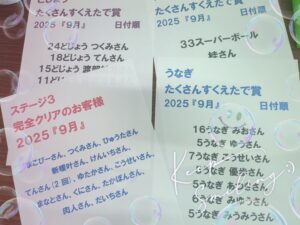 たくさんすくえたで賞
2025『9月』 日付順
24どじょう つくみさん
18どじょう てんさん
15どじょう
11ど
たくさんすくえたで賞
2025『9月』 日付順
33スーパーボール
ステージ3
完全クリアのお客様
2025『9月』
なこぴーさん、つくみさん、ひゅうたさん
新種叶さん、けんいちさん、
てんさん(2回)、ゆたかさん、こうせいさん、
まなとさん、くにさん、たかぽんさん、
肉人さん、だいちさん
うなぎ
たくさんすくえたで賞
2025『9月』 日付順
16うなぎ みおさん
5うなぎ ゆうさん
7うなぎ こうせいさん
5うなぎ 優歩さん
5うなぎ あつきさん
6うなぎ ゆうさん
5うなぎ みうみうさん